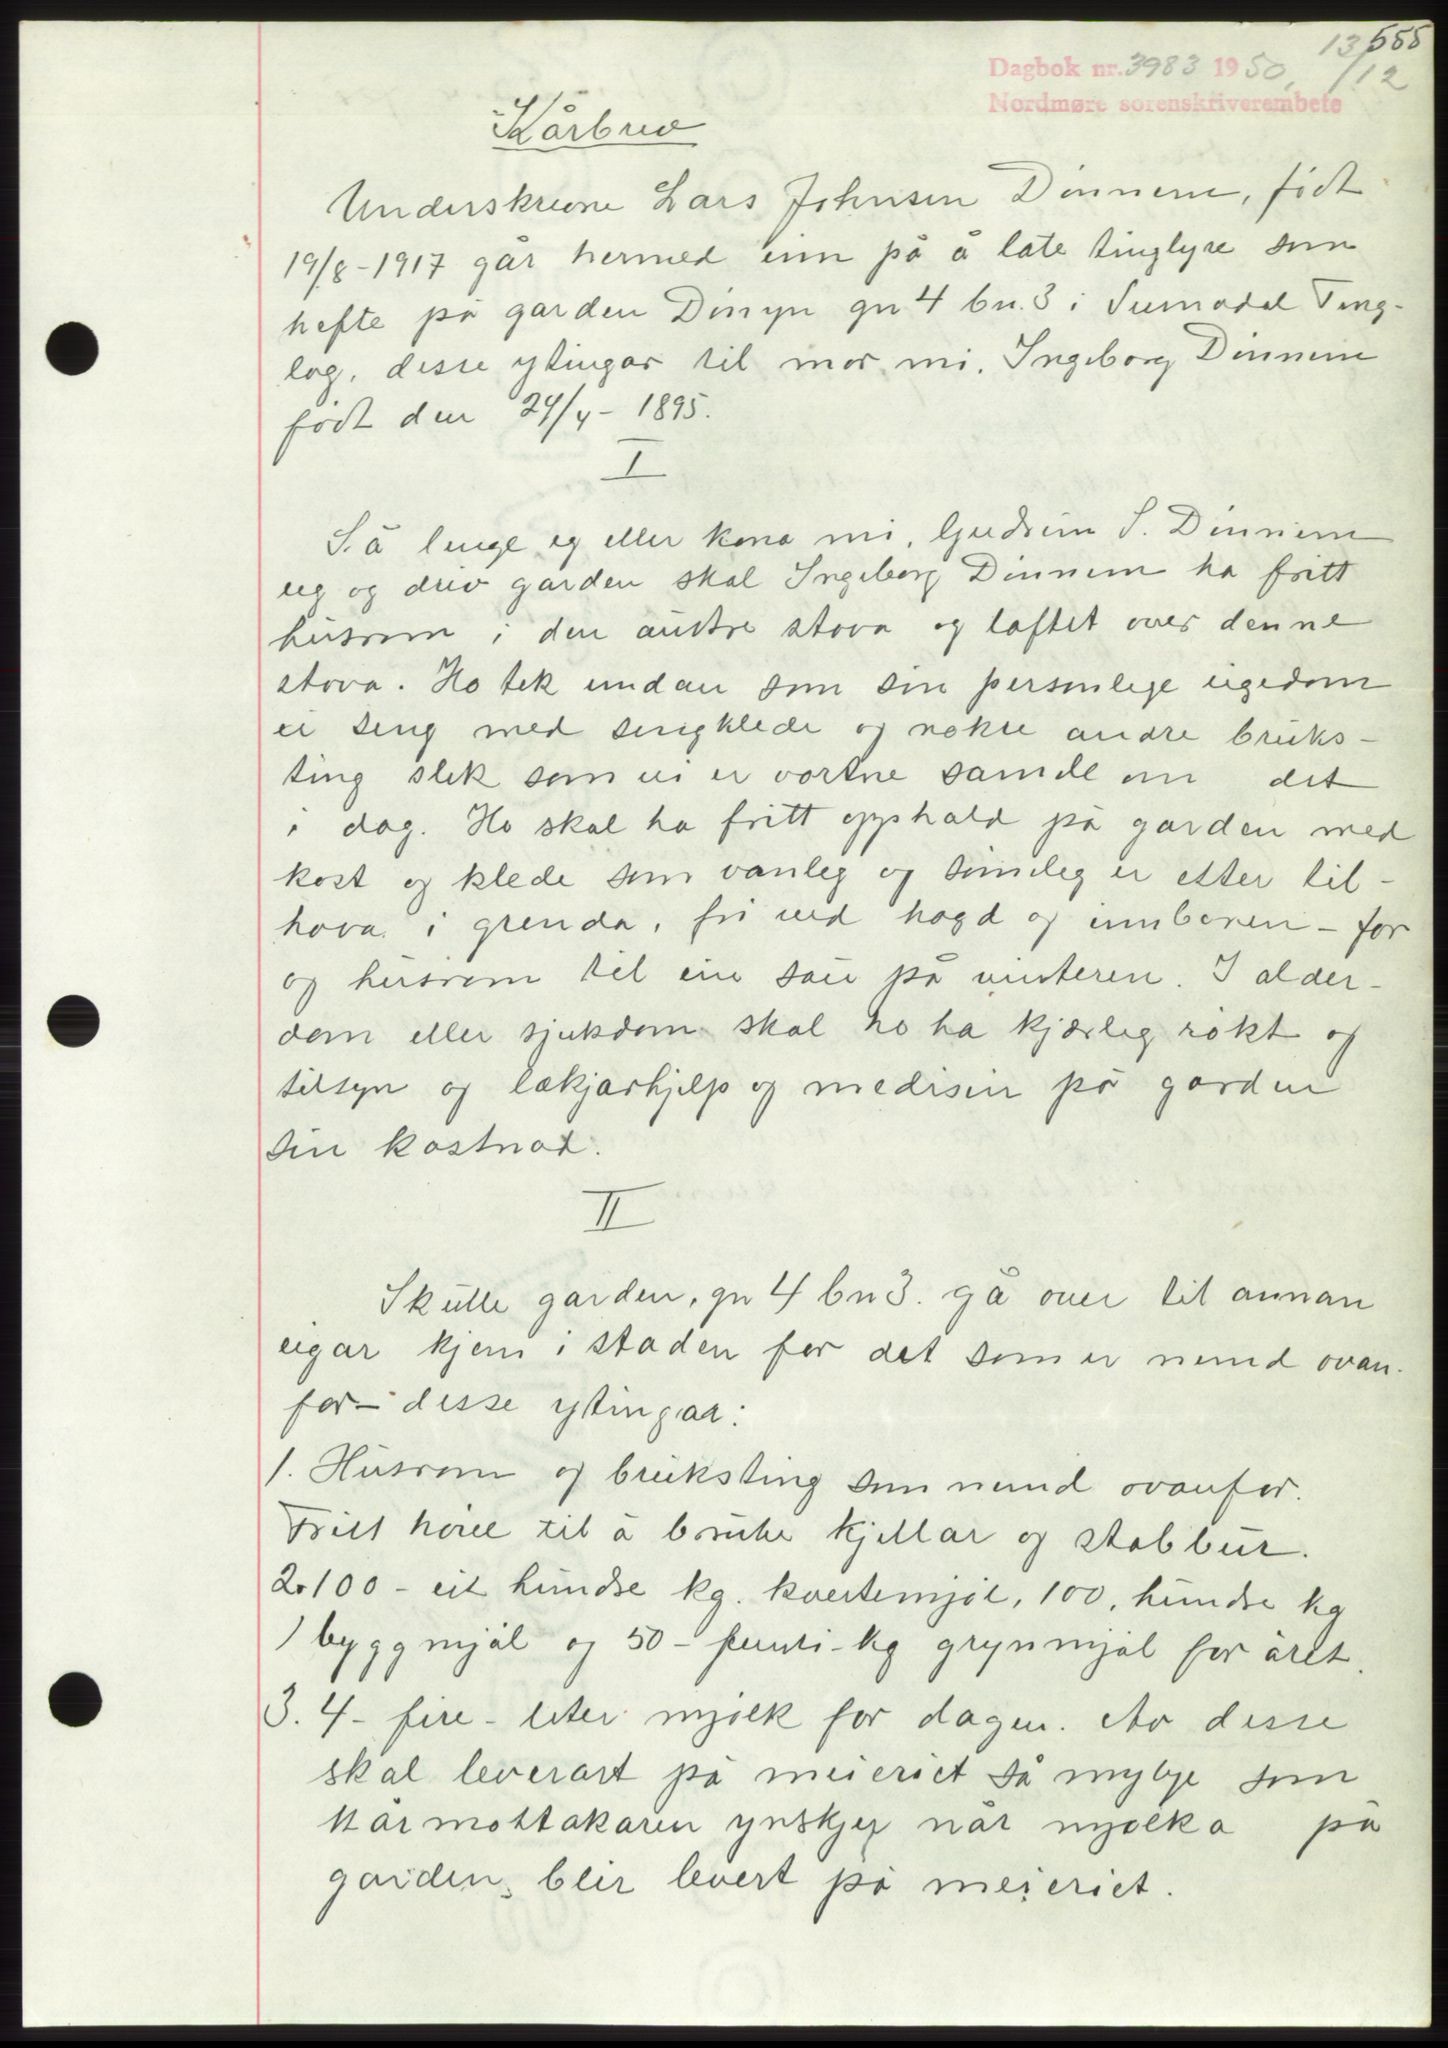 555
13/12
Dagbok nr. 3983 1950,
Nordmøre sorenskriverembete
Kårbrev
Underskrivne Lars Johnsen Dønnem, født
19/8-1917 går hermed inn på å late tinglyse som
hefte på garden Dønyn gn 4 bn. 3 i Surnadal Ting-
lag, desse ytingar til mor mi, Ingeborg Dønnem
født den 24/4- 1895.
I
Så lenge eg eller kona mi, Gudrun S. Dønnem
eig og driv garden skal Ingeborg Dønnem ha fritt
husrom i den austre stova og loftet over denne
stova. Ho tek undan som sin personlege eigedom
ei seng med sengklede og nokre andre bruks-
ting slik som vi er vortne samde om det
i dag. Ho skal ha fritt opphald på garden med
kost og klede som vanleg og sømeleg er etter til-
høva i grenda, fri ved hogd og innboren - for
og husrom til ein sau på vinteren. I alder-
dom eller sjukdom skal ho ha kjærleg røkt og
tilsyn og lækjarhjelp og medisin på garden
sin kostnad.
II
Skulle garden, gn 4 bn 3. gå over til annan
eigar kjem i staden for det som er nemd ovan-
for - desse ytingar:
1. Husrom og bruksting som nemd ovanfor.
Fritt høve til å bruke kjellar og stabbur.
2. 100 - eit hundre kg. kveitemjøl, 100, hundre kg
byggmjøl og 50 - femti - kg grynmjøl for året.
3. 4 - fire - liter mjølk for dagen. Av desse
skal leverast på meieriet så mykje som
kårmottakaren ynskjer når mjølka på
garden, blir levert på meieriet.